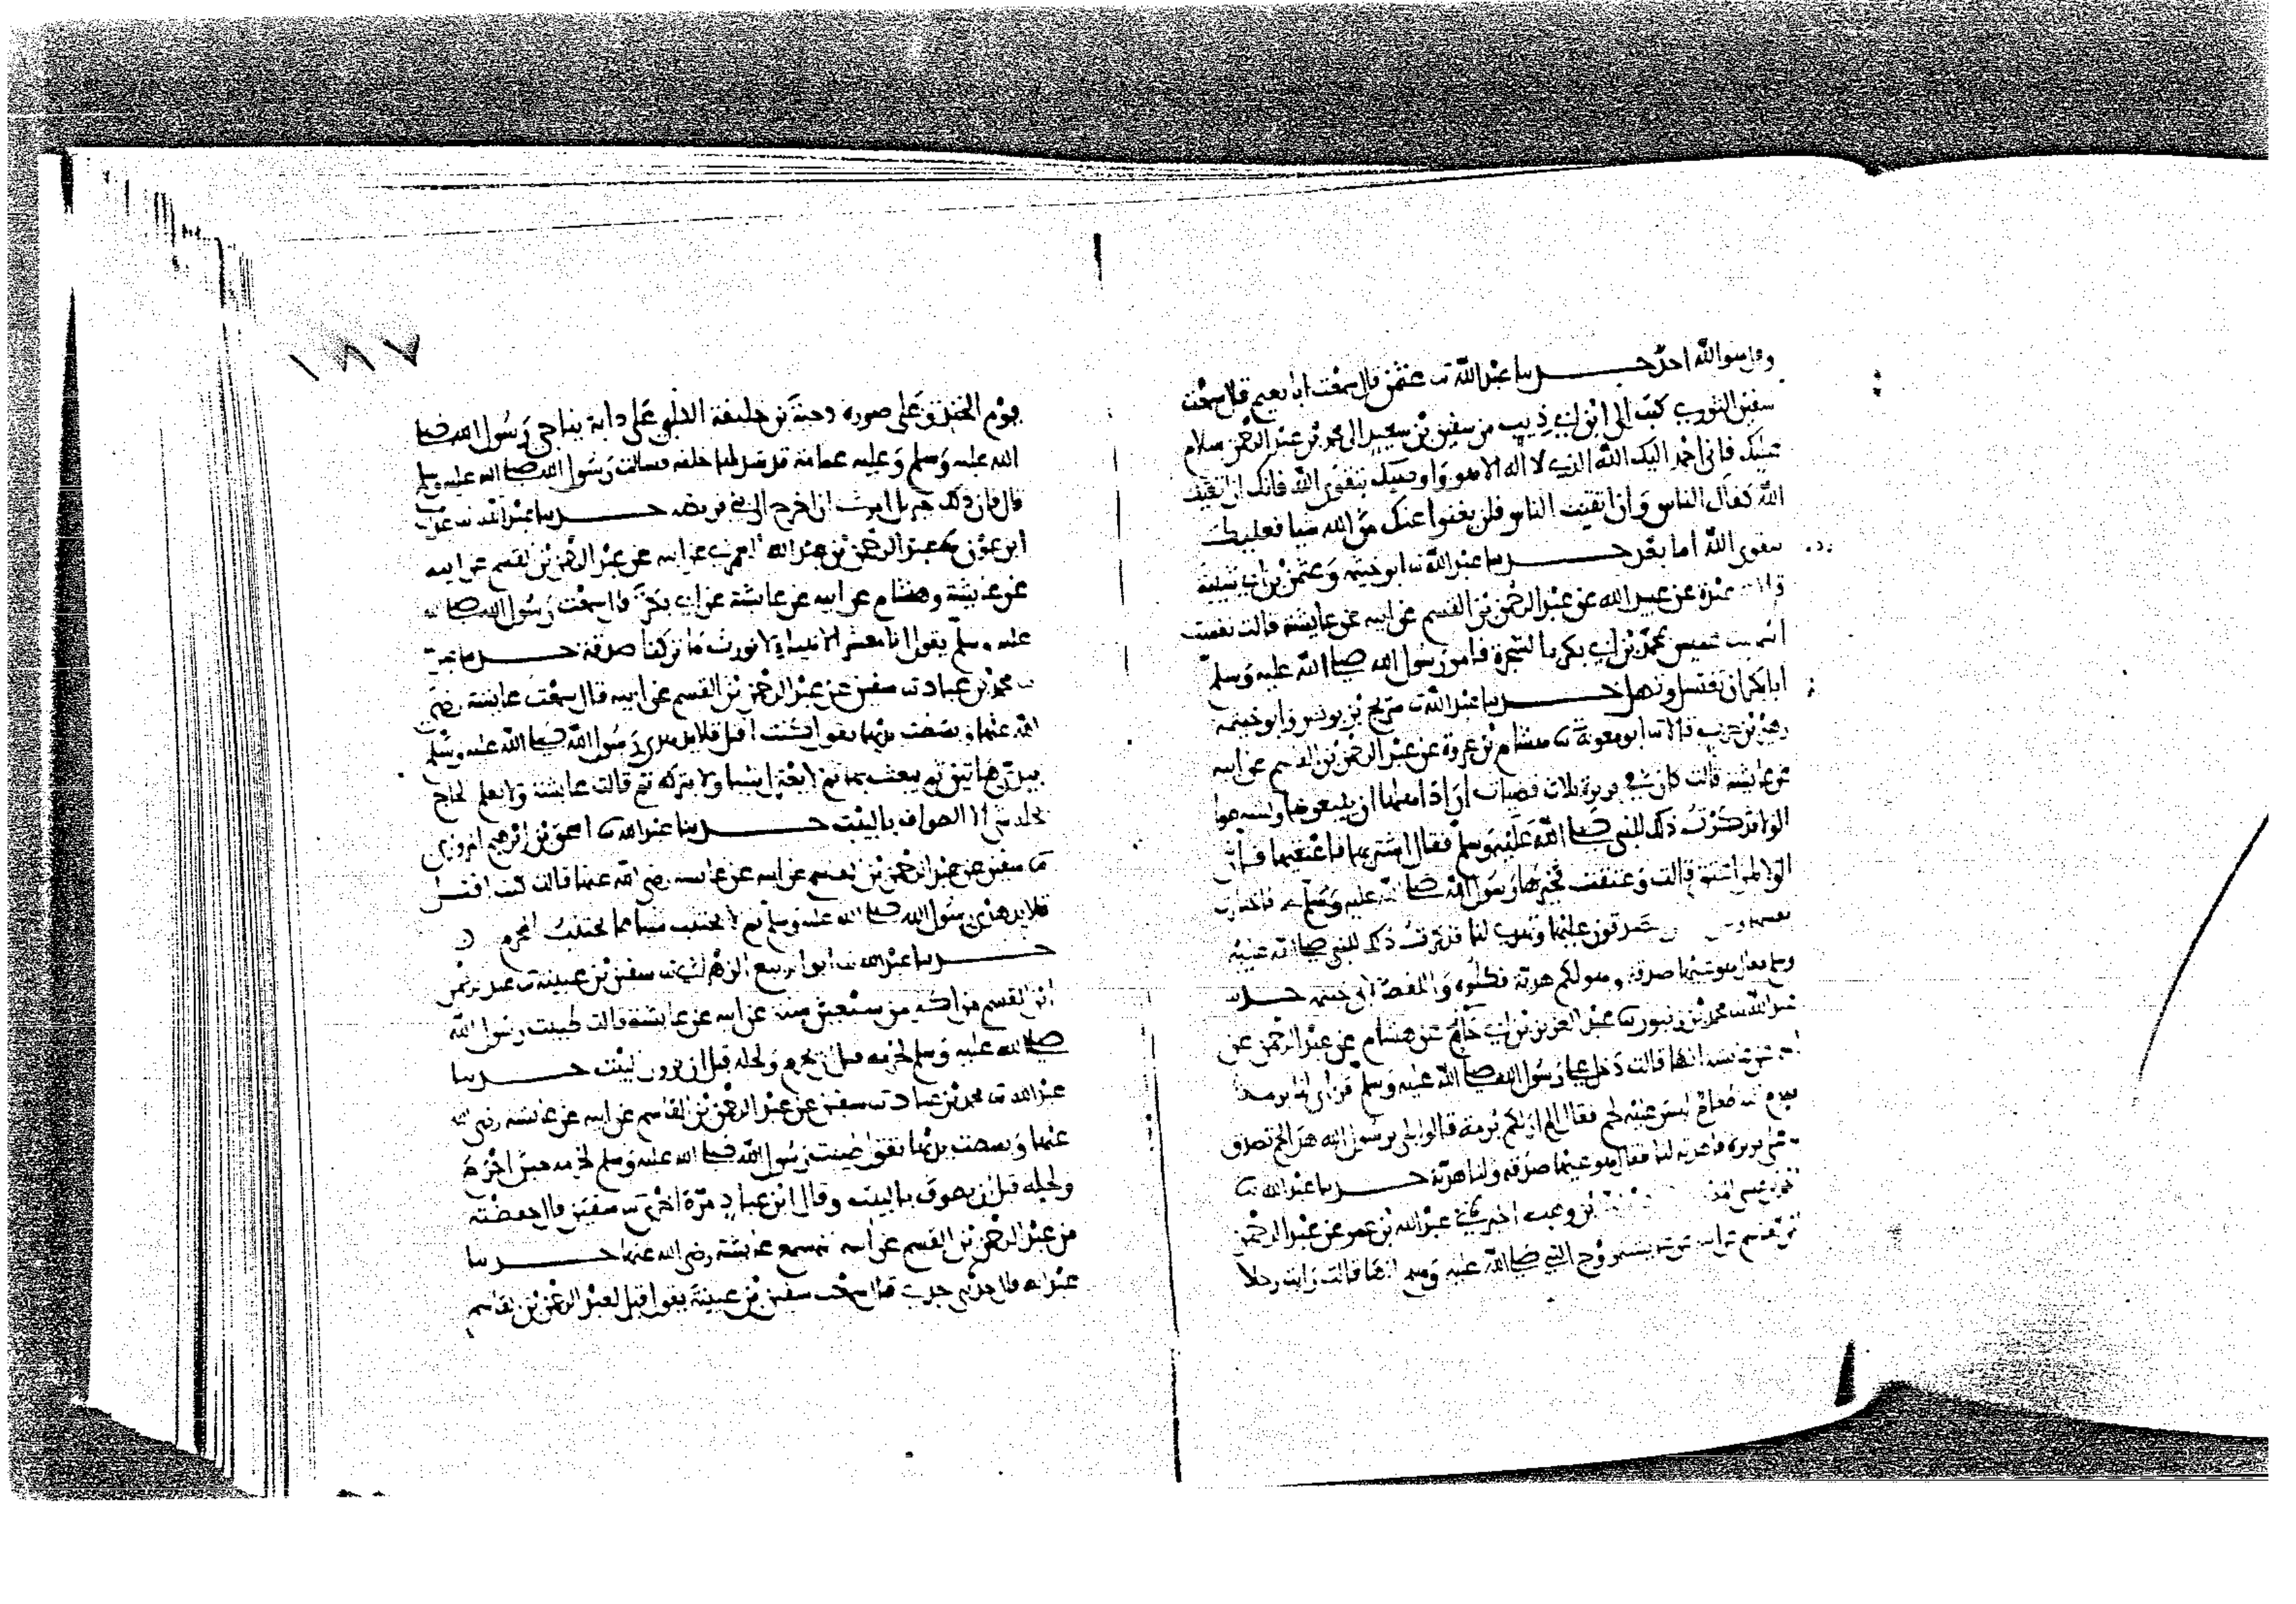 رسول الله أحد حدثنا عبد الله نا عثمن قال سمعت ابا نعيم قال سمعت
سفين الثوري كتب الى ابن ابي ذيب من سفين بن سعيد الى محمد بن عبد الرحمن سلام
عليك فاني احمد اليك الله الذي لا اله الا هو واوصيك بتقوى الله فانك ان اتقيت
الله كفاك الناس وان اتقيت الناس فلن يغنوا عنك من الله شيا فعليك
بتقوى الله اما بعد حدثنا عبد الله نا ابو خيثمه وعثمن بن ابي شيبة
عبدة عن عبيد الله عن عبد الرحمن بن القسم عن ابيه عن عايشة قالت نفست
عميس بمحمد بن ابي بكر بالشجرة فامر رسول الله صلى الله عليه وسلم
ابا بكر ان تغتسل وتهل حدثنا عبد الله نا سريج بن يونس وابو خيثمه
زهير بن حرب قالا نا ابو معوية نا هشام بن عروة عن عبد الرحمن بن القسم عن ابيه
عن عايشة قالت كان في بريرة ثلاث قضيات اراد اهلها ان يبيعوها ويشترطوا
الولا فذكرت ذلك للنبي صلى الله عليه وسلم فقال اشتريها فاعتقيها فان
الولا لمن اعتق قالت وعتقت فخيرها رسول الله صلى الله عليه وسلم فاختارت
نفسها يتصدقون عليها وتهدي لنا فذكرت ذلك للنبي صلى الله عليه
وسلم فقال هو عليها صدقة وهو لكم هدية فكلوه واللفظ لابي خيثمه حدثنا
عبد الله نا محمد بن زنبور نا عبد العزيز بن ابي حازم عن هشام عن عبد الرحمن عن
عن عايشة انها قالت دخل علي رسول الله صلى الله عليه وسلم فراى
طعام ليس فيه لحم فقال الم ار لكم برمة قالوا بلى يرسول الله هذا لحم تصدق
على بريرة فاهدته لنا فقال هو عليها صدقة ولنا هدية حدثنا عبد الله نا
بن عيسى ابن وهب اخبرني عبد الله بن عمر عن عبد الرحمن
بن القاسم عن ابيه عن عايشة زوج النبي صلى الله عليه وسلم انها قالت رايت رجلا
١٨٧
يوم الخندق على صورة دحية بن خليفة الكلبي على دابة يناجي رسول الله صلى
الله عليه وسلم وعليه عمامة قد سدلها خلفه فسالت رسول الله صلى الله عليه وسلم
قال فان ذلك جبريل امرني ان اخرج الى بني قريظه حدثنا عبد الله نا عبد الله بن
ابن عون نا عبد الرحمن بن عبد الله العمري عن ابيه عن عبد الرحمن بن القسم عن ابيه
عن عايشة وهشام عن ابيه عن عائشة عن ابي بكر قال سمعت رسول الله صلى الله
عليه وسلم يقول انا معشر الانبياء لا نورث ما تركنا صدقة حدثنا عبد الله
نا محمد بن عباد نا سفين عن عبد الرحمن بن القسم عن ابيه قال سمعت عايشة رضي
الله عنها وبسطت يديها تقول كنت افتل قلايد هدي رسول الله صلى الله عليه وسلم
بيدي هاتين ثم يبعث بها ثم لا يعتزل شيا ولا يتركه ثم قالت عايشة ولا نعلم الحاج
يحله شي الا الطواف بالبيت حدثنا عبد الله نا اسحق بن ابرهيم المروزي
نا سفين عن عبد الرحمن بن القسم عن ابيه عن عايشة رضي الله عنها قالت كنت افتل
قلايد هدي رسول الله صلى الله عليه وسلم ثم لا يجتنب شيا مما يجتنب المحرم
حدثنا عبد الله نا ابو الربيع الزهراني نا سفين بن عيينة نا عبد الرحمن
ابن القسم عن ابيه عن عايشة قالت طيبت رسول الله
صلى الله عليه وسلم لحرمه قبل ان يحرم ولحله قبل ان يزور البيت حدثنا
عبد الله نا محمد بن عباد نا سفين عن عبد الرحمن بن القاسم عن ابيه عن عايشة رضي الله
عنها وبسطت يديها تقول طيبت رسول الله صلى الله عليه وسلم لحرمه حين احرم
ولحله قبل ان يطوف بالبيت وقال ابن عباد مرة اخرى نا سفين قال حفظته
من عبد الرحمن بن القسم عن ابيه سمع عايشة رضي الله عنها حدثنا
عبد الله قال حدثني جدي قال سمعت سفين بن عيينة يقول قيل لعبد الرحمن بن القاسم